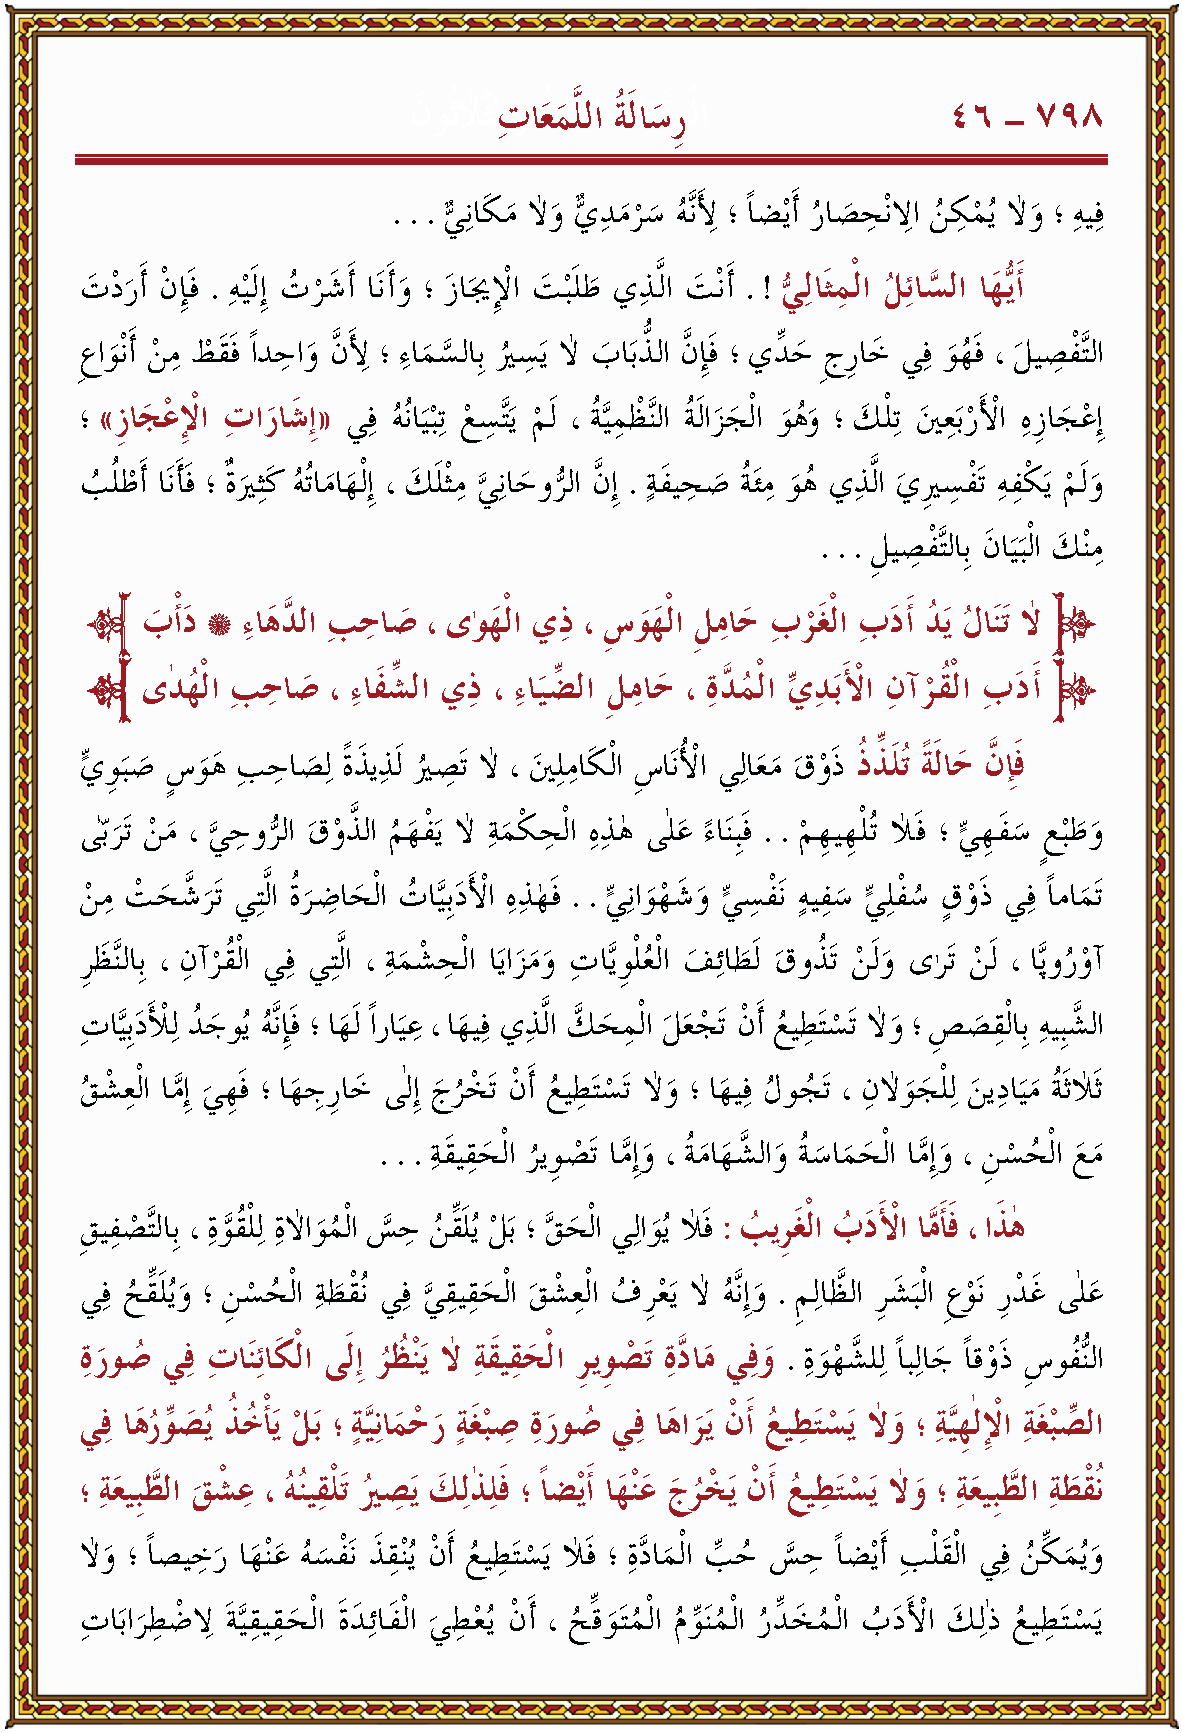 ٧٩٨ – ٤٦ رِسَالَةُ اللَّمَعَاتِ
فِيهِ ؛ وَلاٰ يُمْكِنُ الاِنْحِصَارُ أَيْضاً ؛ لِأَنَّهُ سَرْمَدِيٌّ وَلاٰ مَكَانِيٌّ . . .
أَيُّهَا السَّائِلُ الْمِثَالِيُّ ! . أَنْتَ الَّذِي طَلَبْتَ الْإِيجَازَ ؛ وَأَنَا أَشَرْتُ إِلَيْهِ . فَإِنْ أَرَدْتَ
التَّفْصِيلَ ، فَهُوَ فِي خَارِجِ حَدِّي ؛ فَإِنَّ الذُّبَابَ لاٰ يَسِيرُ بِالسَّمَاءِ ؛ لِأَنَّ وَاحِداً فَقَطْ مِنْ أَنْوَاعِ
إِعْجَازِهِ الْأَرْبَعِينَ تِلْكَ ؛ وَهُوَ الْجَزَالَةُ النَّظْمِيَّةُ ، لَمْ يَتَّسِعْ تِبْيَانُهُ فِي «إِشَارَاتِ الْإِعْجَازِ» ؛
وَلَمْ يَكْفِهِ تَفْسِيرِيَ الَّذِي هُوَ مِئَةُ صَحِيفَةٍ . إِنَّ الرُّوحَانِيَّ مِثْلَكَ ، إِلْهَامَاتُهُ كَثِيرَةٌ ؛ فَأَنَا أَطْلُبُ
مِنْكَ الْبَيَانَ بِالتَّفْصِيلِ . . .
لاٰ تَنَالُ يَدُ أَدَبِ الْغَرْبِ حَامِلِ الْهَوَسِ ، ذِي الْهَوٰى ، صَاحِبِ الدَّهَاءِ ۞ دَأْبَ
أَدَبِ الْقُرْآنِ الْأَبَدِيِّ الْمُدَّةِ ، حَامِلِ الضِّيَاءِ ، ذِي الشِّفَاءِ ، صَاحِبِ الْهُدٰى
فَإِنَّ حَالَةً تُلَذِّذُ ذَوْقَ مَعَالِي الْأُنَاسِ الْكَامِلِينَ ، لاٰ تَصِيرُ لَذِيذَةً لِصَاحِبِ هَوَسٍ صَبَوِيٍّ
وَطَبْعٍ سَفَهِيٍّ ؛ فَلاٰ تُلْهِيهِمْ . . فَبِنَاءً عَلٰى هٰذِهِ الْحِكْمَةِ لاٰ يَفْهَمُ الذَّوْقَ الرُّوحِيَّ ، مَنْ تَرَبّٰى
تَمَاماً فِي ذَوْقٍ سُفْلِيٍّ سَفِيهٍ نَفْسِيٍّ وَشَهْوَانِيٍّ . . فَهٰذِهِ الْأَدَبِيَّاتُ الْحَاضِرَةُ الَّتِي تَرَشَّحَتْ مِنْ
آوْرُوپَّا ، لَنْ تَرٰى وَلَنْ تَذُوقَ لَطَائِفَ الْعُلْوِيَّاتِ وَمَزَايَا الْحِشْمَةِ ، الَّتِي فِي الْقُرْآنِ ، بِالنَّظَرِ
الشَّبِيهِ بِالْقِصَصِ ؛ وَلاٰ تَسْتَطِيعُ أَنْ تَجْعَلَ الْمِحَكَّ الَّذِي فِيهَا ، عِيَاراً لَهَا ؛ فَإِنَّهُ يُوجَدُ لِلْأَدَبِيَّاتِ
ثَلاٰثَةُ مَيَادِينَ لِلْجَوَلاٰنِ ، تَجُولُ فِيهَا ؛ وَلاٰ تَسْتَطِيعُ أَنْ تَخْرُجَ إِلٰى خَارِجِهَا ؛ فَهِيَ إِمَّا الْعِشْقُ
مَعَ الْحُسْنِ ، وَإِمَّا الْحَمَاسَةُ وَالشَّهَامَةُ ، وَإِمَّا تَصْوِيرُ الْحَقِيقَةِ . . .
هٰذَا ، فَأَمَّا الْأَدَبُ الْغَرِيبُ : فَلاٰ يُوَالِي الْحَقَّ ؛ بَلْ يُلَقِّنُ حِسَّ الْمُوَالاٰةِ لِلْقُوَّةِ ، بِالتَّصْفِيقِ
عَلٰى غَدْرِ نَوْعِ الْبَشَرِ الظَّالِمِ . وَإِنَّهُ لاٰ يَعْرِفُ الْعِشْقَ الْحَقِيقِيَّ فِي نُقْطَةِ الْحُسْنِ ؛ وَيُلَقِّحُ فِي
النُّفُوسِ ذَوْقاً جَالِباً لِلشَّهْوَةِ . وَفِي مَادَّةِ تَصْوِيرِ الْحَقِيقَةِ لاٰ يَنْظُرُ إِلَى الْكَائِنَاتِ فِي صُورَةِ
الصِّبْغَةِ الْإِلٰهِيَّةِ ؛ وَلاٰ يَسْتَطِيعُ أَنْ يَرَاهَا فِي صُورَةِ صِبْغَةٍ رَحْمَانِيَّةٍ ؛ بَلْ يَأْخُذُ يُصَوِّرُهَا فِي
نُقْطَةِ الطَّبِيعَةِ ؛ وَلاٰ يَسْتَطِيعُ أَنْ يَخْرُجَ عَنْهَا أَيْضاً ؛ فَلِذٰلِكَ يَصِيرُ تَلْقِينُهُ ، عِشْقَ الطَّبِيعَةِ ؛
وَيُمَكِّنُ فِي الْقَلْبِ أَيْضاً حِسَّ حُبِّ الْمَادَّةِ ؛ فَلاٰ يَسْتَطِيعُ أَنْ يُنْقِذَ نَفْسَهُ عَنْهَا رَخِيصاً ؛ وَلاٰ
يَسْتَطِيعُ ذٰلِكَ الْأَدَبُ الْمُخَدِّرُ الْمُنَوِّمُ الْمُتَوَقِّحُ ، أَنْ يُعْطِيَ الْفَائِدَةَ الْحَقِيقِيَّةَ لِاضْطِرَابَاتِ